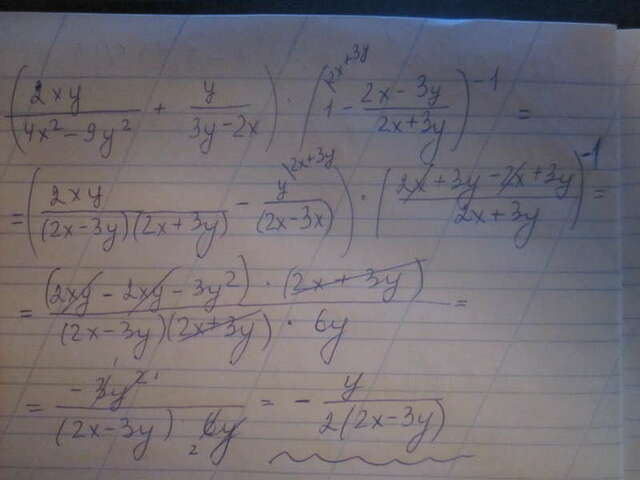 (2xy/(4x² - 9y²) + y/(3y - 2x)) · (1^(2x+3y) - (2x - 3y)/(2x + 3y))^(-1) =
= (2xy/((2x - 3y)(2x + 3y)) - y^(2x+3y)/(2x - 3x)) · ((2x + 3y - 2x + 3y)/(2x + 3y))^(-1) =
= ((2xy - 2xy - 3y²) · (2x + 3y))/((2x - 3y)(2x + 3y) · 6y) =
= (-3y²)/((2x - 3y) 6y) = - y/(2(2x - 3y))